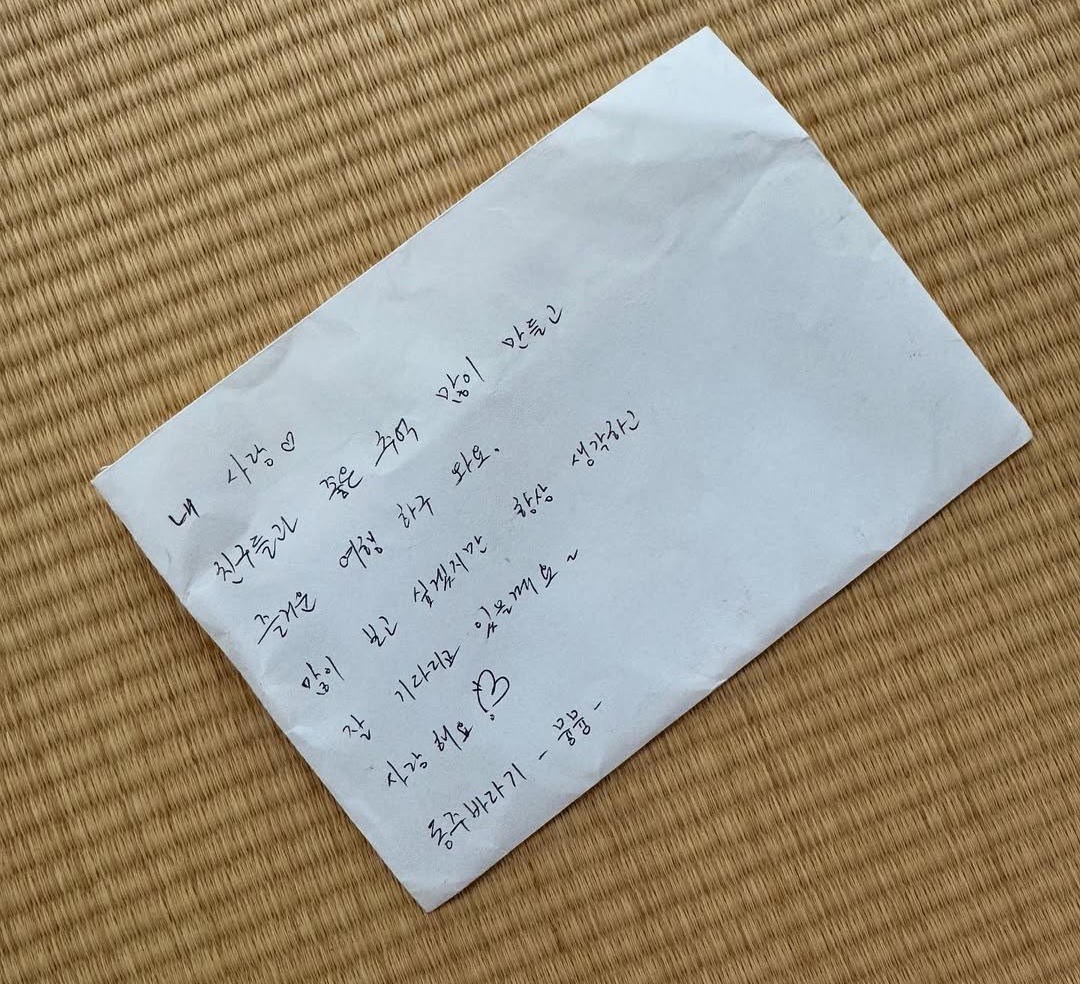 내 사랑♡
친구들과 좋은 추억 많이 만들고
즐거운 여행 하구 와요.
많이 보고 싶겠지만 항상 생각하고
잘 기다리고 있을께요~
사랑해요♡
동주바라기 - 뿡뿡-